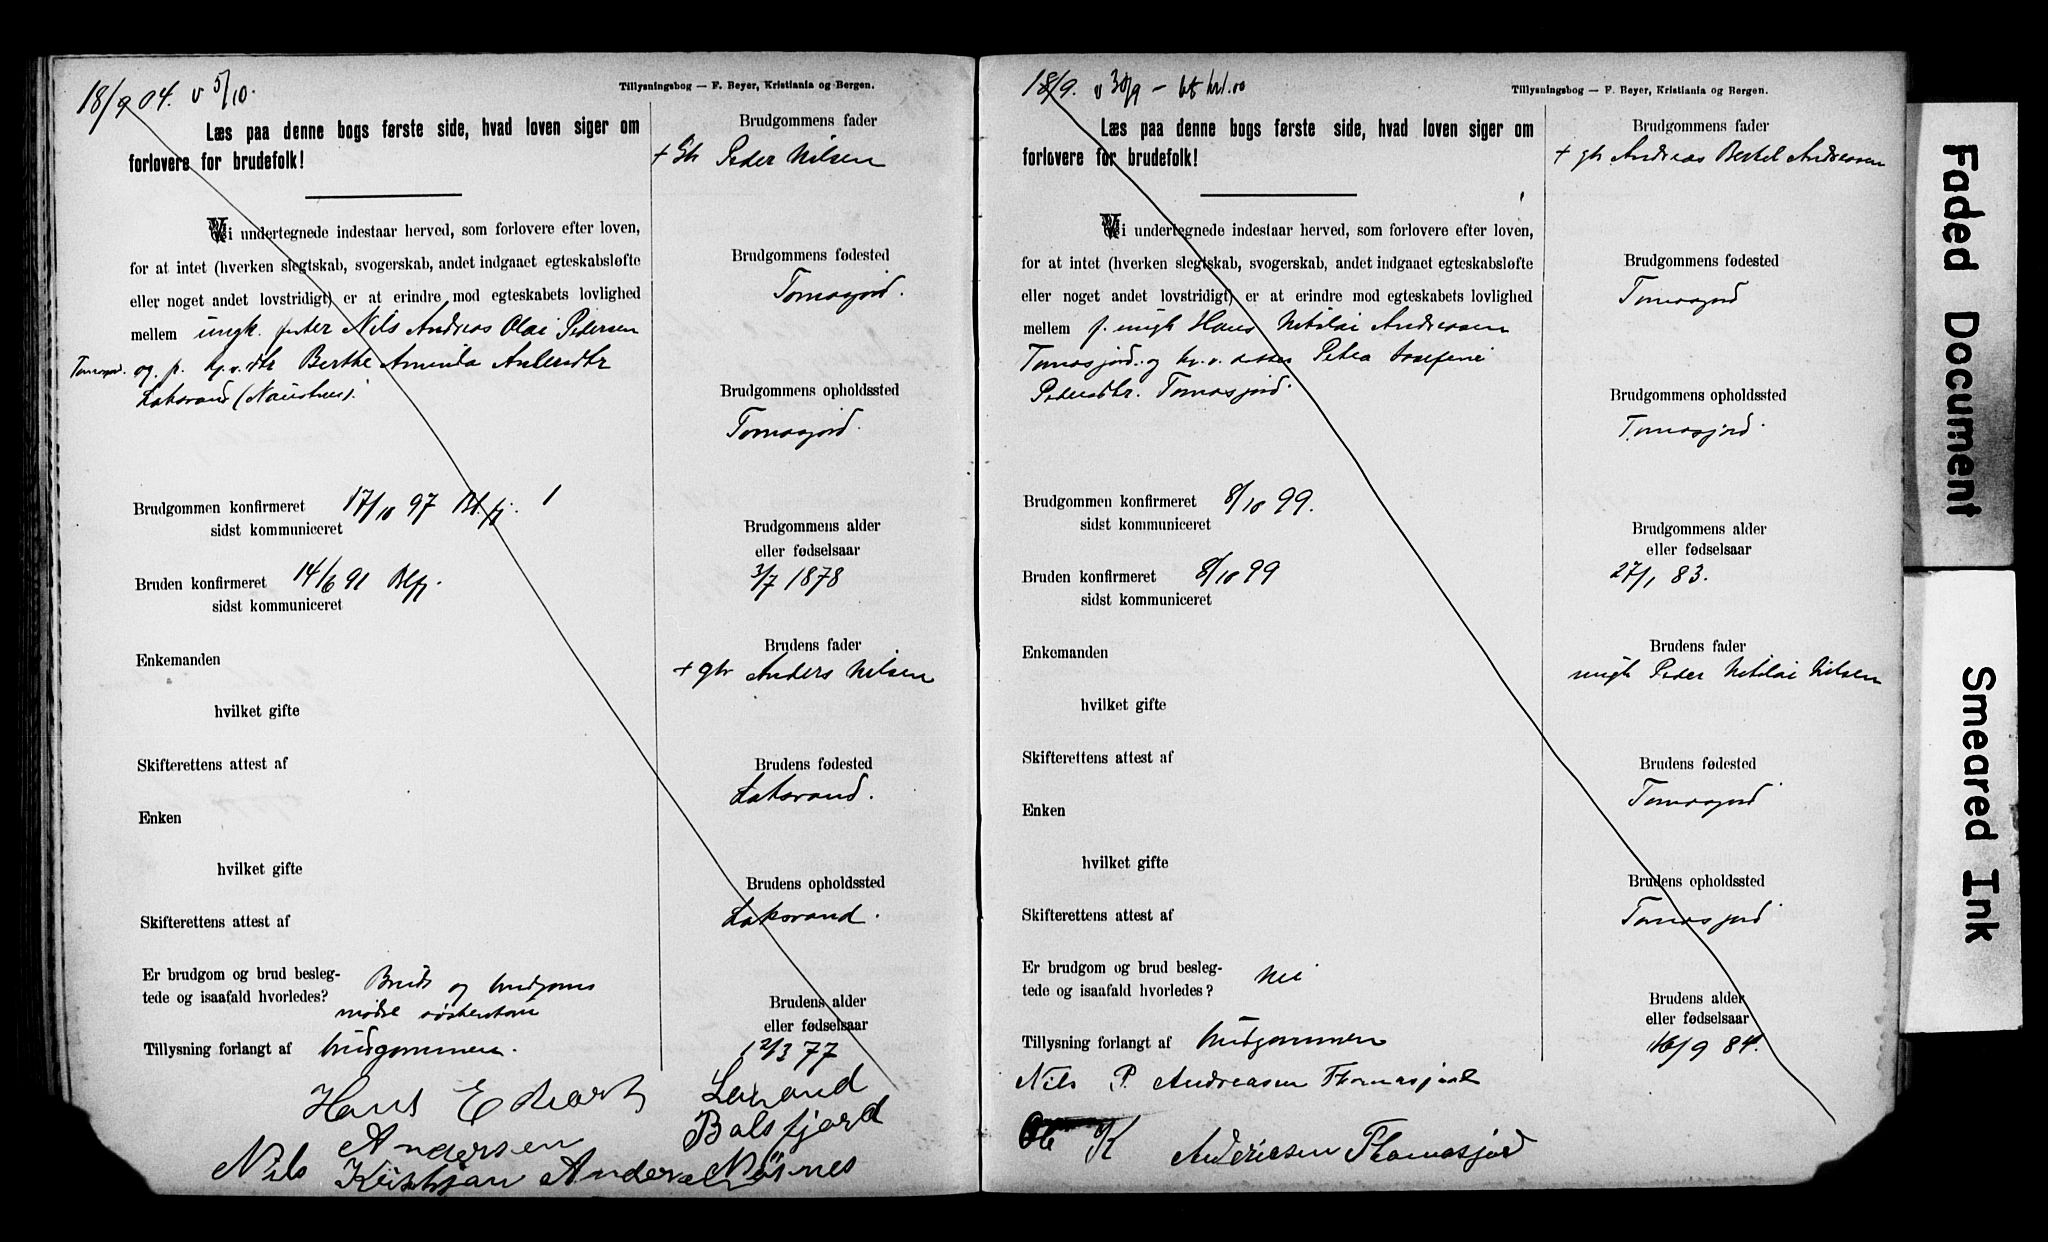 18/9 04. v 5/10.
Tillysningsbog — F. Beyer, Kristiania og Bergen.
Læs paa denne bogs første side, hvad loven siger om
forlovere for brudefolk!
Vi undertegnede indestaar herved, som forlovere efter loven,
for at intet (hverken slegtskab, svogerskab, andet indgaaet egteskabsløfte
eller noget andet lovstridigt) er at erindre mod egteskabets lovlighed
mellem ungk. Nils Andreas Olai Pedersen
Tomasjord. og p. Berthe Aminda
Laksvand
Brudgommen konfirmeret 17/10 97 Blfj. 1
sidst kommuniceret
Bruden konfirmeret 14/6 91 Blfj.
sidst kommuniceret
Enkemanden
hvilket gifte
Skifterettens attest af
Enken
hvilket gifte
Skifterettens attest af
Er brudgom og brud besleg-
tede og isaafald hvorledes? Bruds og brudgoms
mødre søskenbarn
Tillysning forlangt af brudgommen.
Brudgommens fader
+ Gb Peder Nilsen
Brudgommens fødested
Tomasjord.
Brudgommens opholdssted
Tomasjord.
Brudgommens alder
eller fødselsaar
3/7 1878
Brudens fader
+ gb Anders Nilsen
Brudens fødested
Laksvand.
Brudens opholdssted
Laksvand.
Brudens alder
eller fødselsaar
12/3 77
Hans Edvart Laxvand
Andersen Balsfjord
Nils Kristjan Andersen
18/9. v 30/9
Tillysningsbog — F. Beyer, Kristiania og Bergen.
Læs paa denne bogs første side, hvad loven siger om
forlovere for brudefolk!
Vi undertegnede indestaar herved, som forlovere efter loven,
for at intet (hverken slegtskab, svogerskab, andet indgaaet egteskabsløfte
eller noget andet lovstridigt) er at erindre mod egteskabets lovlighed
mellem f. ungk Hans Nikolai Andreassen
Tomasjord. og Petra Josefine
Pedersdtr. Tomasjord.
Brudgommen konfirmeret 8/10 99.
sidst kommuniceret
Bruden konfirmeret 8/10 99
sidst kommuniceret
Enkemanden
hvilket gifte
Skifterettens attest af
Enken
hvilket gifte
Skifterettens attest af
Er brudgom og brud besleg-
tede og isaafald hvorledes? Nei
Tillysning forlangt af brudgommen
Brudgommens fader
+ gb Andreas Bertel Andreassen
Brudgommens fødested
Tomasjord
Brudgommens opholdssted
Tomasjord.
Brudgommens alder
eller fødselsaar
27/1 83.
Brudens fader
ungk Peder Nikolai Nilsen
Brudens fødested
Tomasjord
Brudens opholdssted
Tomasjord
Brudens alder
eller fødselsaar
16/9 84.
Nils P. Andreasen Thomasjord
K Andriesen Thomasjord
Faded Document
Smeared Ink